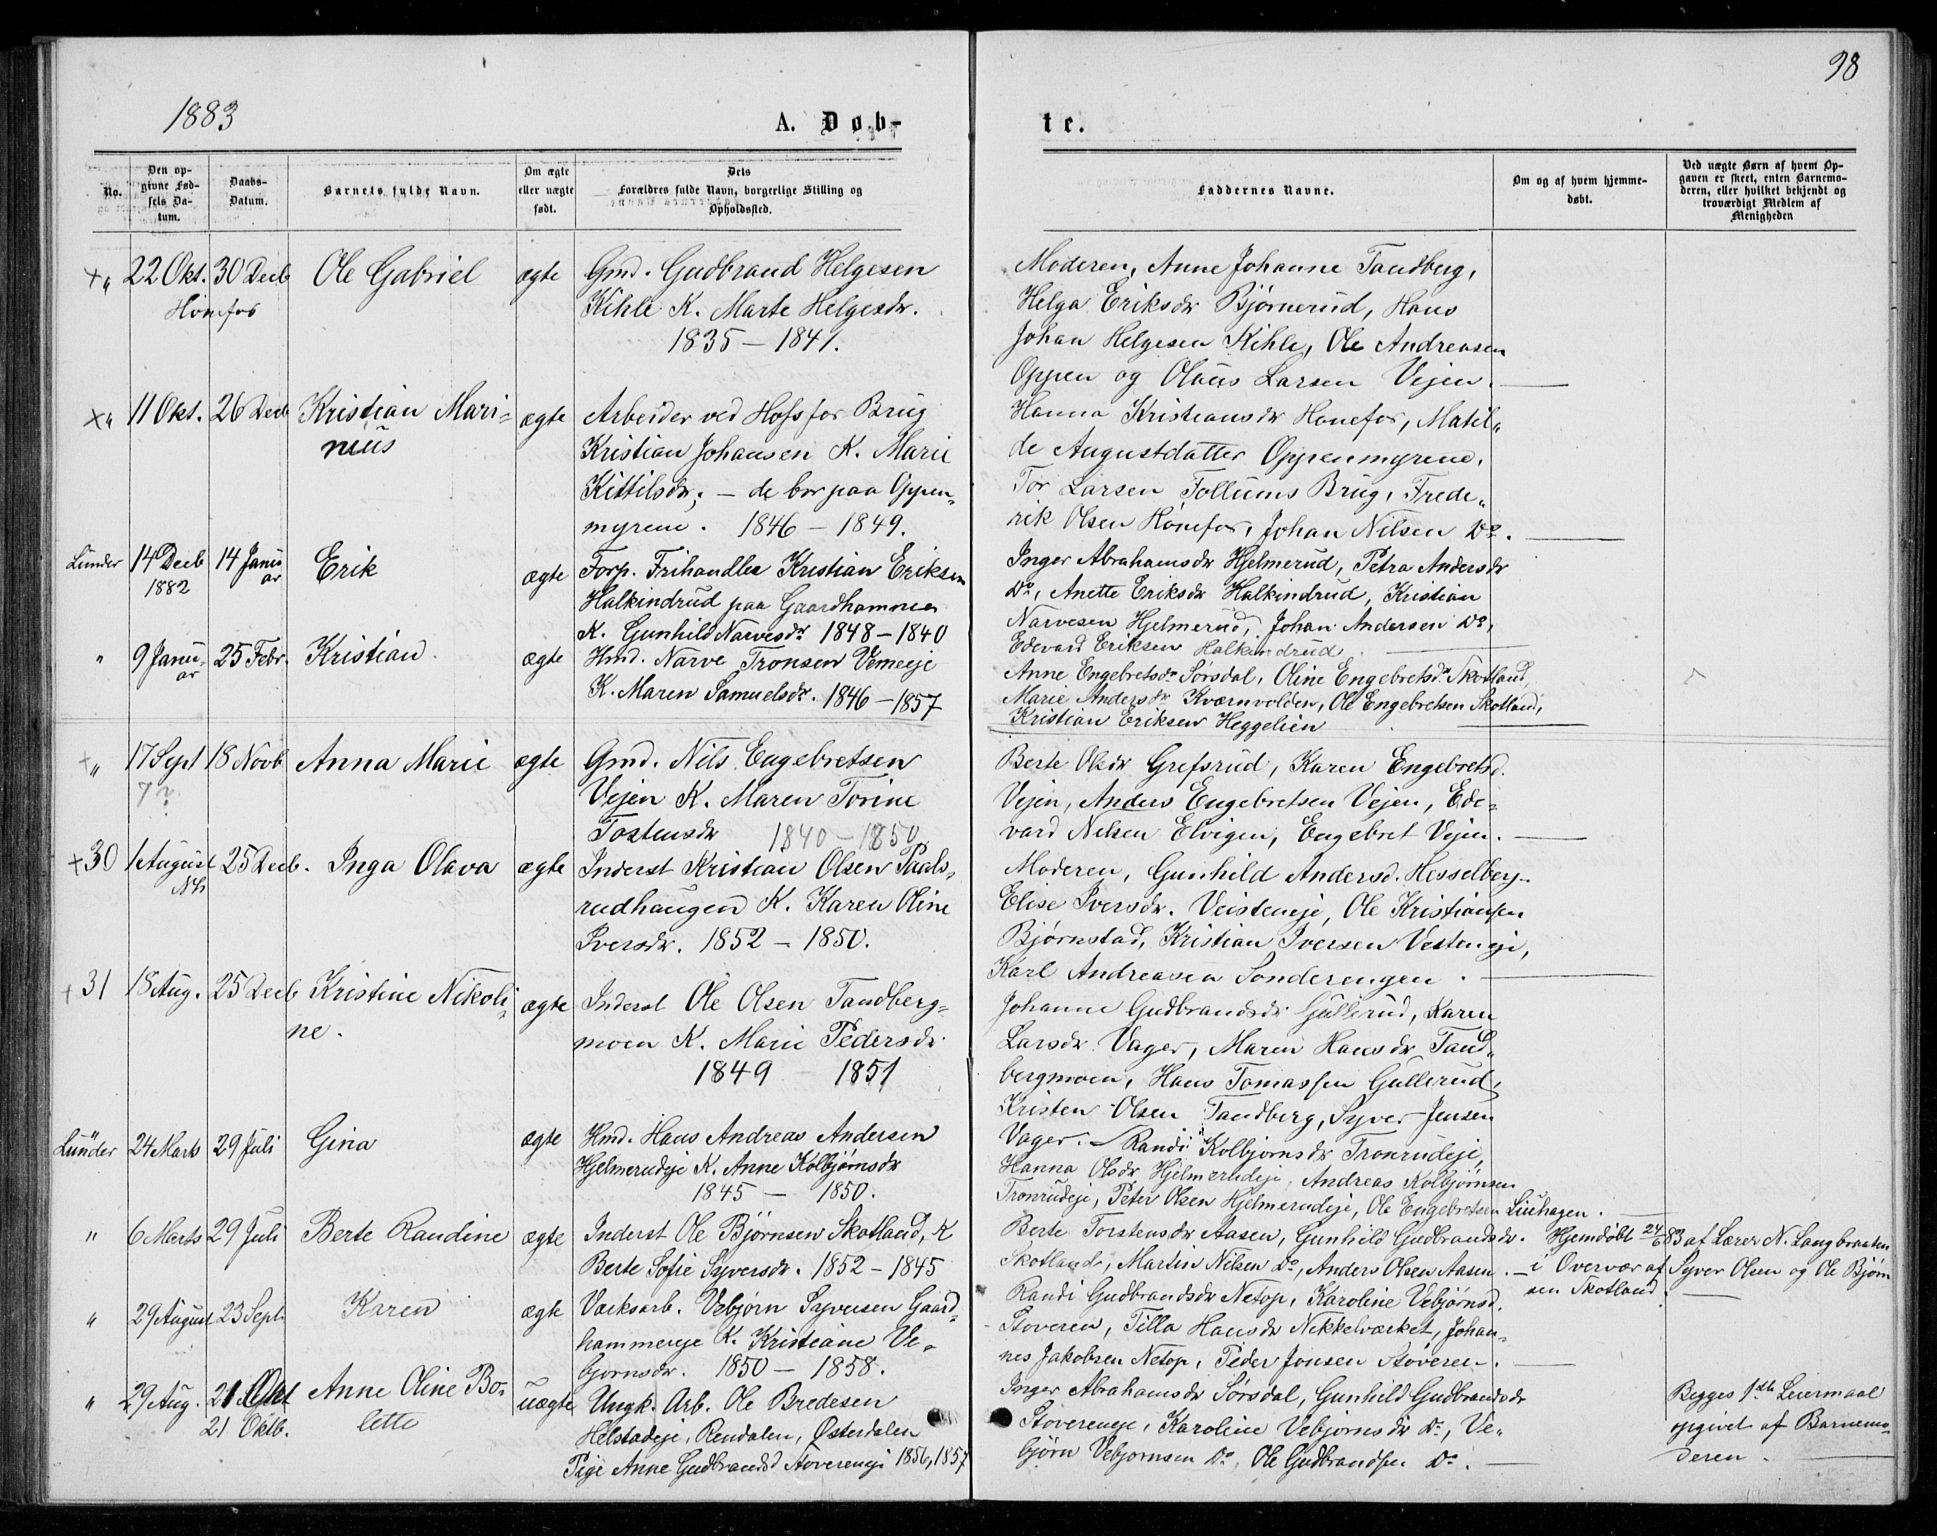 98
1883
A. Døb-
te.
No.
Den op-
givne Fød-
sels Da-
tum.
Daabs-
Datum.
Barnets fulde Navn.
Om ægte
eller uægte
født.
Dets
Forældres fulde Navn, borgerlige Stilling og
Opholdssted.
Faddernes Navne.
Om og af hvem hjemme-
døbt.
Ved uægte Børn af hvem Op-
gaven er skeet, enten Barnemo-
deren, eller hvilket bekjendt og
troværdigt Medlem af
Menigheden
+ " 22 Okt. 30 Decb Ole Gabriel ægte Gmd. Gudbrand Helgesen
Hønefos
Kihle K. Marte Helgesdr.
1835 - 1841.
Moderen, Anne Johanne Tandberg,
Helga Eriksdr Bjørnerud, Hans
Johan Helgesen Kihle, Ole Andreasen
Oppen og Olaus Larsen Vejen.
+ " 11 Okt. 26 Decb Kristian Mari- ægte Arbeider ved Hofsfos Brug
nius
Kristian Johansen K. Marie
Kittilsdr, - de bor paa Oppen-
myrene. 1846 - 1849.
Hanna Kristiansdr Hønefos, Matil-
de Augustdatter Oppenmyrene,
Tor Larsen Follums Brug, Frede-
rik Olsen Hønefos, Johan Nilsen Do.
Lunder 14 Decb 14 Janu Erik ægte Forp. Frihandler Kristian Eriksen
1882 ar
Halkindrud paa Gaardhammer
K. Gunhild Narvesdr 1848 - 1840
Inger Abrahamsdr Hjelmerud, Petra Andersdr
Do, Anette Eriksdr Halkindrud, Kristian
Narvesen Hjelmerud, Johan Andersen Do,
Edevard Eriksen Halkindrud.
" 9 Janu- 25 Febr. Kristian. ægte Hmd. Narve Tronsen Vemeeje
ar
K. Maren Samuelsdr. 1846 - 1857
Anne Engebretsdr Sørsdal, Oline Engebretsdr Skotland,
Marie Andersdr Kværnvolden, Ole Engebretsen Skotland,
Kristian Eriksen Heggelien
+ " 17 Sept 18 Novb Anna Marie ægte Gmd. Nils Engebretsen
7?
Vejen K. Maren Torine
Tostensdr 1840 - 1850
Berte Olsdr Grefsrud, Karen Engebretsd.
Vejen, Anders Engebretsen Vejen, Ede-
vard Nelsen Elvigen, Engebret Vejen.
+ 30 1 August 25 Decb. Inga Olava ægte Inderst Kristian Olsen Paals-
rudhaugen K. Karen Oline
Iversdr. 1852 - 1850.
Moderen, Gunhild Andersd. Hesselberg
Elise Iversdr. Veisteneje, Ole Kristiansen
Bjørnstad, Kristian Iversen Vesteneje,
Karl Andreasen Sonderengen.
+ 31 18 Aug. 25 Decb Kristine Nikoli- ægte Inderst Ole Olsen Tandberg-
ne.
moen K. Marie Pedersdr
1849 - 1851
Johanne Gudbrandsdr Gullerud, Karen
Larsdr Vager, Maren Hansdr Tand-
bergmoen, Hans Tomassen Gullerud,
Kristen Olsen Tandberg, Syver Jensen
Vager. - Randi Kolbjørnsdr Tronrudeje,
Lunder 24 Marts 29 Juli Gina ægte Hmd. Hans Andreas Andersen
Hjelmerudeje K. Anne Kolbjørnsdr
1845 - 1850.
Hanna Olsdr Hjelmerudeje, Andreas Kolbjørnsen
Tronrudeje, Peter Olsen Hjelmerudeje, Ole Engebretsen Liuhagen.
" 6 Marts 29 Juli Berte Randine ægte Inderst Ole Bjørnsen Skotland, K
Berte Sofie Syversdr. 1852 - 1845
Berte Torstensdr Aasen, Gunhild Gudbrandsdr. Hjemdøbt 24/6 83 af Lærer N. Langbraaten
Skotland, Martin Nilsen Do, Anders Olsen Aasen. - i Overvær af Syver Olsen og Ole Bjørn
sen Skotland.
" 29 August 23 Sept. Karen ægte Værksarb. Vebjørn Syversen Gaard-
hammereje K. Kristiane Ve-
bjornsdr. 1850 - 1858.
Randi Gudbrandsdr Netop, Karoline Vebjørnsd.
Støveren, Tilla Hansdr Nikkelværket, Johan-
nes Jakobsen Netop, Peder Jonsen Støveren.
" 29 Aug. 21 Okt Anne Oline Bo- uægte Ungk. Arb. Ole Bredesen
21 Oktb. lette
Helstadeje, Rendalen, Østerdalen
Pige Anne Gudbrandsd Støvereneje 1856, 1857
Inger Abrahamsdr Sørsdal, Gunhild Gudbrandsdr
Støvereneje, Karoline Vebjornsdr Do, Ve-
bjørn Vebjornsen Do, Ole Gudbrandsen Do.
Begges 1ste Leiermaal
opgivet af Barnemo-
deren.